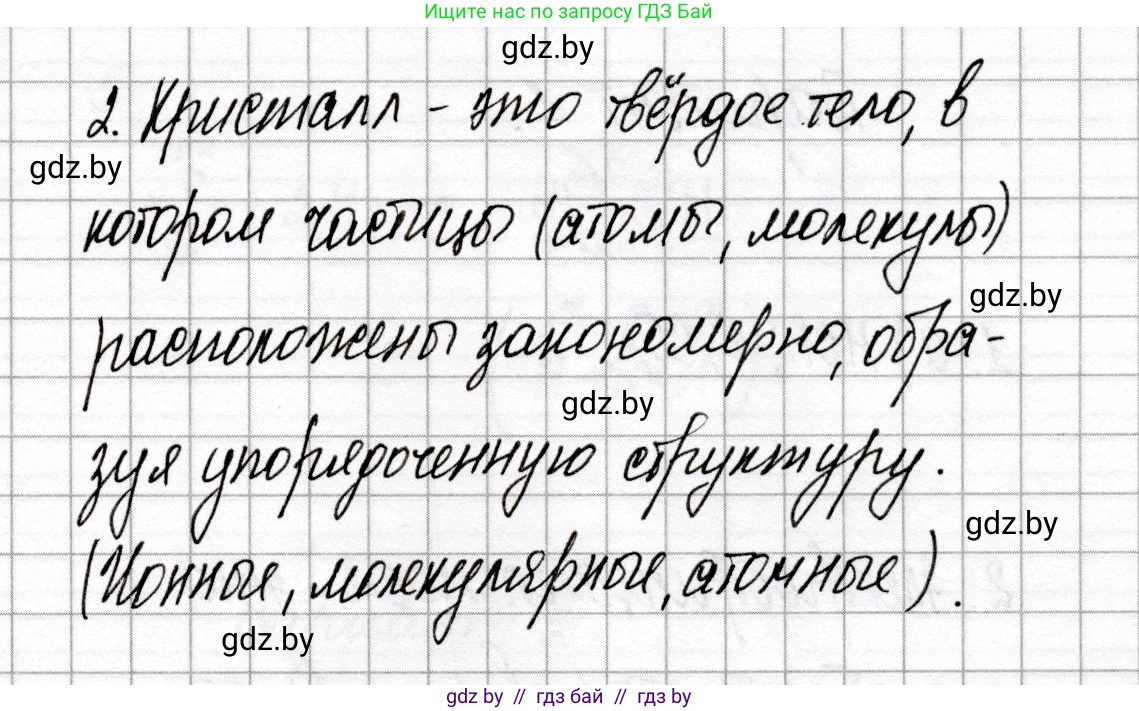 Ищите нас по запросу ГДЗ Бай
gdz.by
2. Кристалл - это твёрдое тело, в
gdz.by
котором частицы (атомы, молекулы)
gdz.by
расположены закономерно, обра-
gdz.by
зуя упорядоченную структуру.
gdz.by
(Ионные, молекулярные, атомные).
gdz.by
gdz by // гдз бай // гдз by